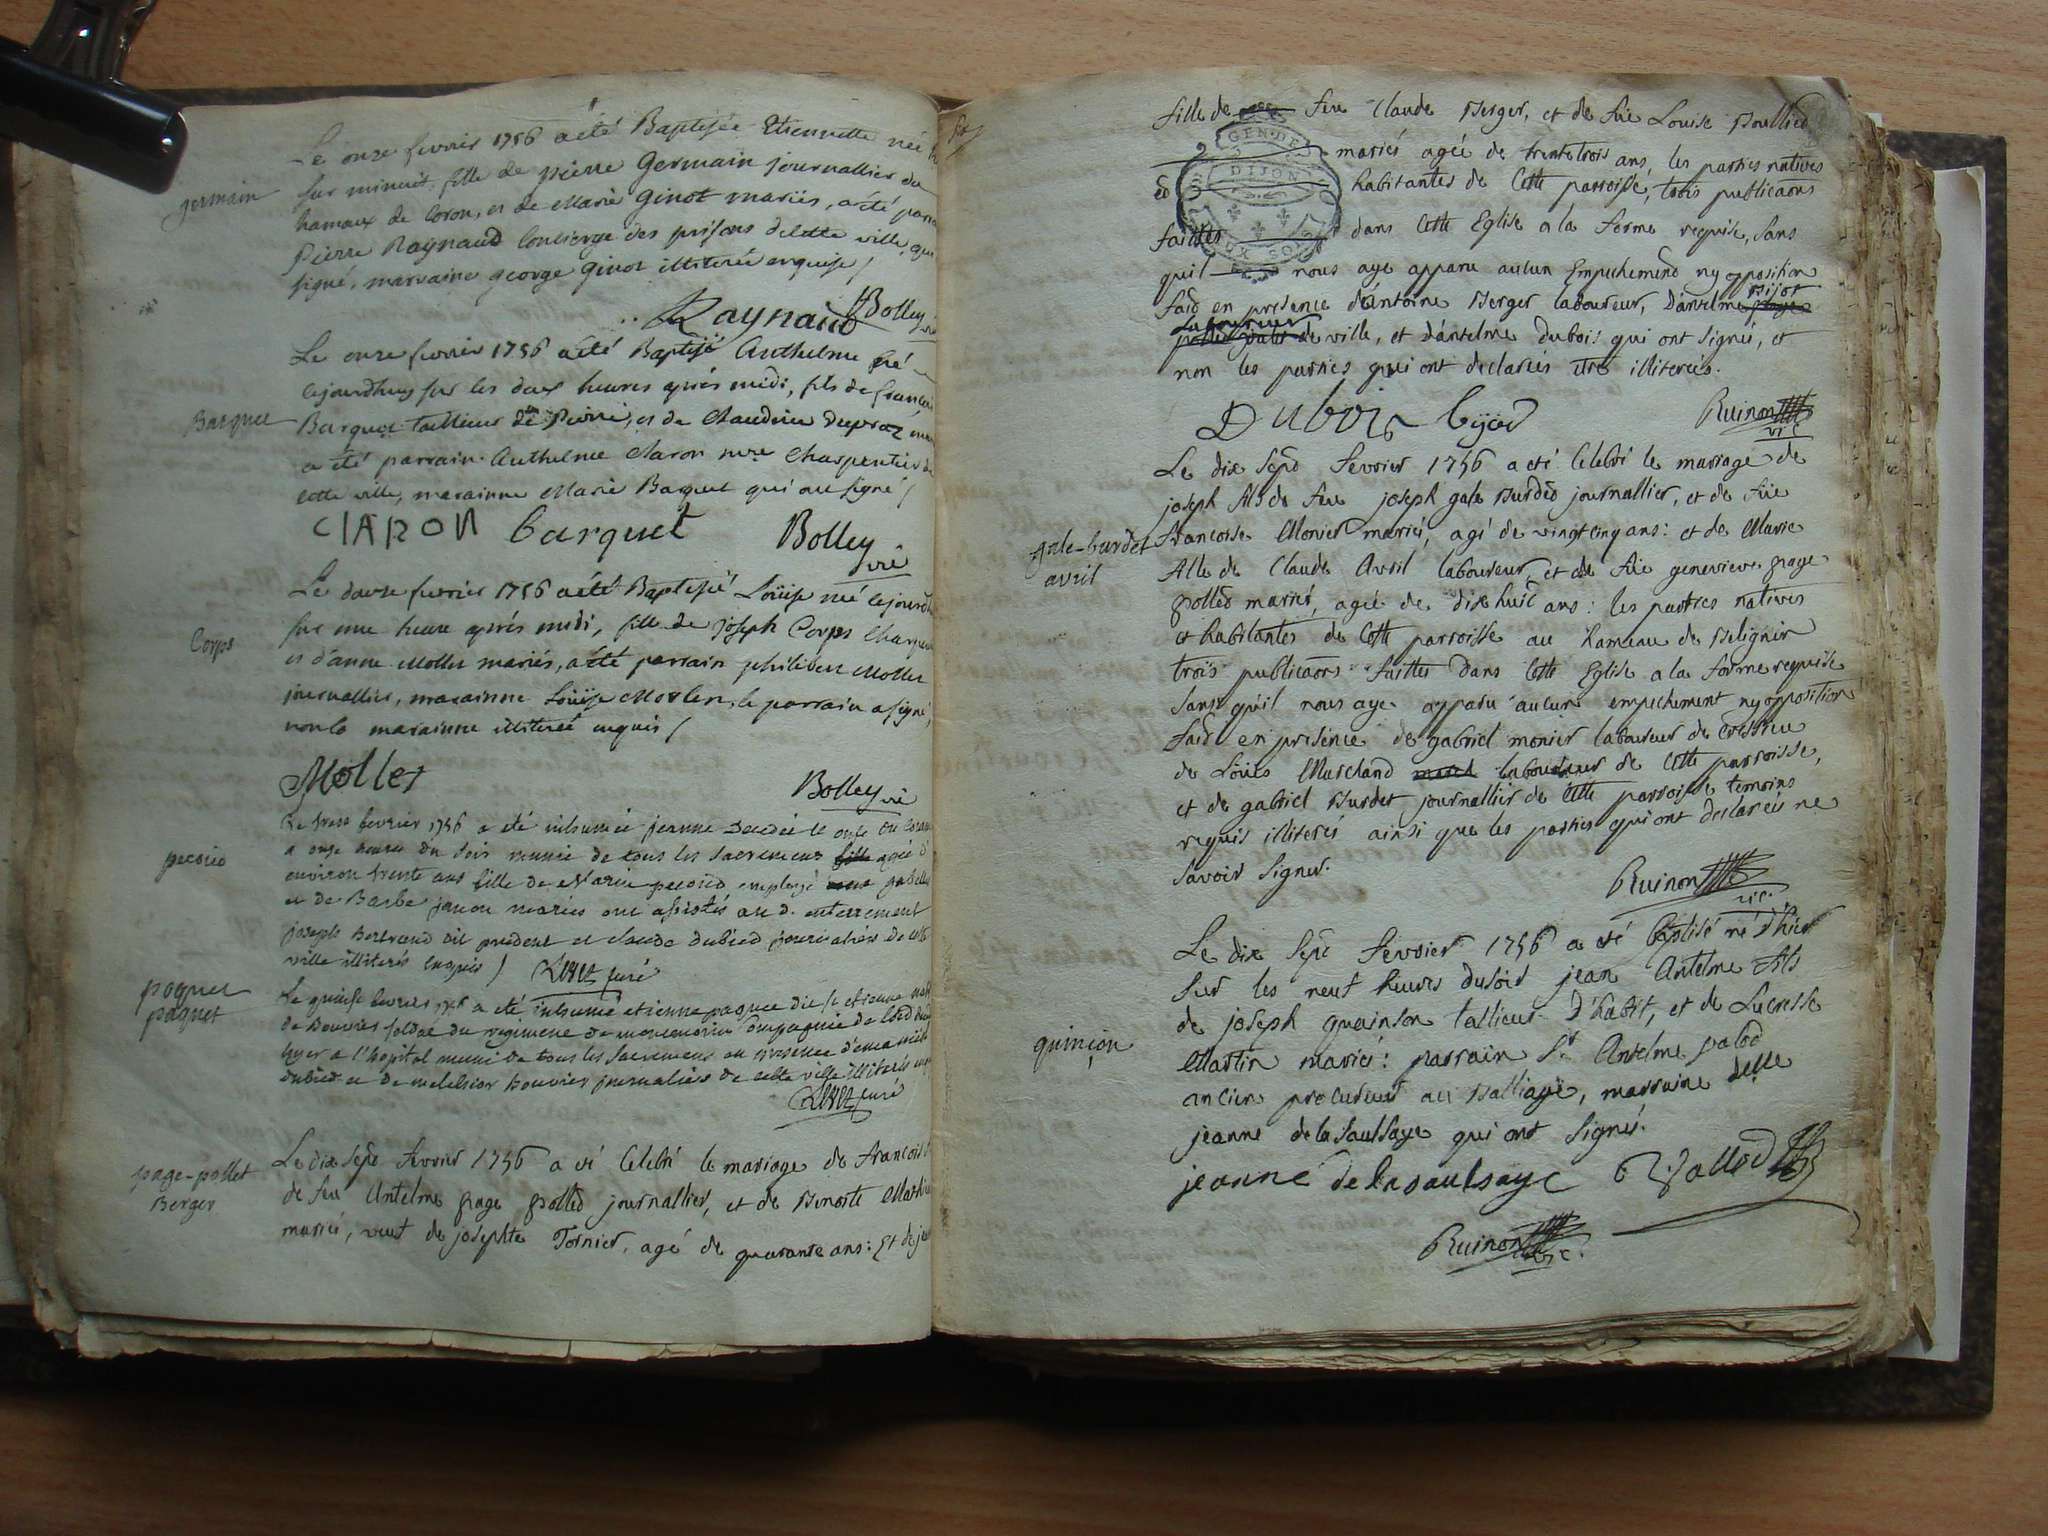 Le onze fevrier 1756 a eté Baptisée Etiennette née
sur minuit fille de pierre Germain journallier du
germain
hamaux de Coron, et de Marie Ginot mariés, a eté parrain
Pierre Raynaud Concierge des prisons de cette ville, qui a
signé, marraine george Ginot illiterée enquise /
Raynaud Bolley vic
Le onze fevrier 1756 a eté Baptisé Anthelme né
cejourdhuy sur les deux heures après midi, fils de françois
Barquet
Barquet tailleur de Pierre, et de Claudine Dupraz
a été parrain Anthelme Claron mre Charpentier de
cette ville, marainne Marie Barquet qui ont signé /
CLARON barquet Bolley vic
Le douze fevrier 1756 a eté Baptisé Loüise née cejourdhuy
sur une heure après midi, fille de joseph Corps
Corps
et d'anne Moller mariés, a eté parrain philibert Moller
journallier, marainne Loüise Morlen, le parrain a signé,
non la marainne illiterée enquis /
Moller Bolley vic
Le treze fevrier 1756 a été inhumée jeanne decedée le onse du courant
a onse heures du soir munie de tous les sacremens fille agée d'
pecoud
environ trente ans fille de Marin pecoud employé gabelles
et de Barbe janon mariés ont assistés au d. enterrement
joseph bertrand dit prudent et claude dubied journaliers de cette
ville illiterés enquis / curé
poquet
paquet
Le quinse fevrier 1756 a été inhumé etienne paquet dit st etienne
de bouvier soldat du regiment de compagnie de
hyer a l'hopital muni de tous les sacremens en presence
dubied et de melchior bouvier journaliers de cette ville illiterés
curé
page-pollet
Berger
Le dix sept fevrier 1756 a eté Celebré le mariage de francois
de feu Antelme page polled journallier, et de Benoite Mathieu
mariés, veuf de josephte Tornier, agé de quarante ans: Et de
fille de feu Claude Berger, et de fûe Louise
mariés agée de trente trois ans, les parties natives
et habitantes de cette parroisse, trois publicaons
GEN. DE
DIJON
faittes dans cette Eglise a la forme requise, sans
quil nous aye apparu aucun Empechement ny opposition
bijot
faid en presence d'antoine Berger laboureur, d'antelme page
laboureur
polled de ville, et d'antelme dubois qui ont signés, et
non les parties qui ont declarées etre illiterées.
Dubois bijod Ruinon vic
Le dix sept fevrier 1756 a eté Celebré le mariage de
joseph fils de feu joseph gale Burded journallier, et de fûe
gale-burdet
avril
francoise Monier mariés, agé de vingt cinq ans: et de Marie
fille de Claude Avril laboureur, et de fûe genevieve page
polled mariés, agée de dix huit ans: les parties natives
et habitantes de cette parroisse au hameau de Belignin
trois publicaons faittes dans cette Eglise a la forme requise
sans qu'il nous aye apparu aucun empechement ny opposition
faid en presence de gabriel monier laboureur de
de Loüis Marchand laboureur de cette parroisse,
et de gabriel Burdet journallier de cette parroisse temoins
requis illiterés ainsi que les parties qui ont declarées ne
savoir signer.
Ruinon vic.
Le dix sept fevrier 1756 a eté Baptisé né d'hier
sur les neuf heures du soir jean Antelme fils
de joseph quainson tallieur d'habit, et de Lucresse
quinçon
Martin mariés: parrain Sr Antelme valod
ancien procureur au Balliage, marraine delle
jeanne de la saulsaye qui ont signés.
jeanne de la saulsaye Vallod
Ruinon vic.